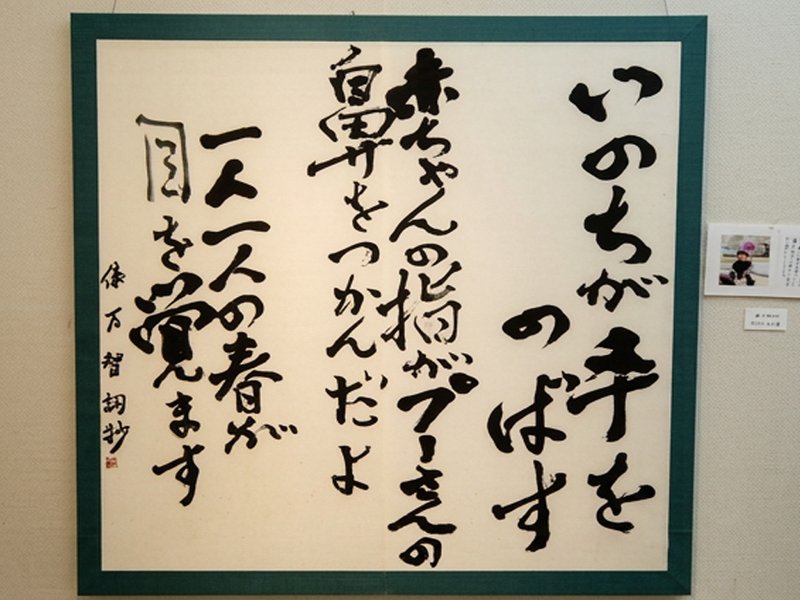 いのちが手を
のばす
赤ちゃんの指がプーさんの
鼻をつかんだよ
一人一人の春が
目を覚ます
俵万智詞抄